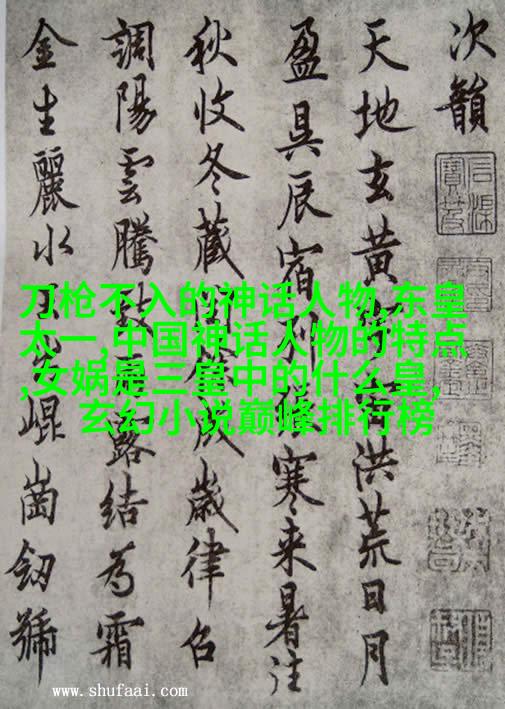 次韻
天地玄黄宇宙洪荒日月
盈昃辰宿列張寒来暑往
秋收冬藏閏餘成歲律召
調陽雲騰致雨露結為霜
金生麗水玉出崐崗劒號
刀枪不入的神话人物,东皇
太一,中国神话人物的特点
,女娲是三皇中的什么皇,
玄幻小说巅峰排行榜
www.shufaai.com